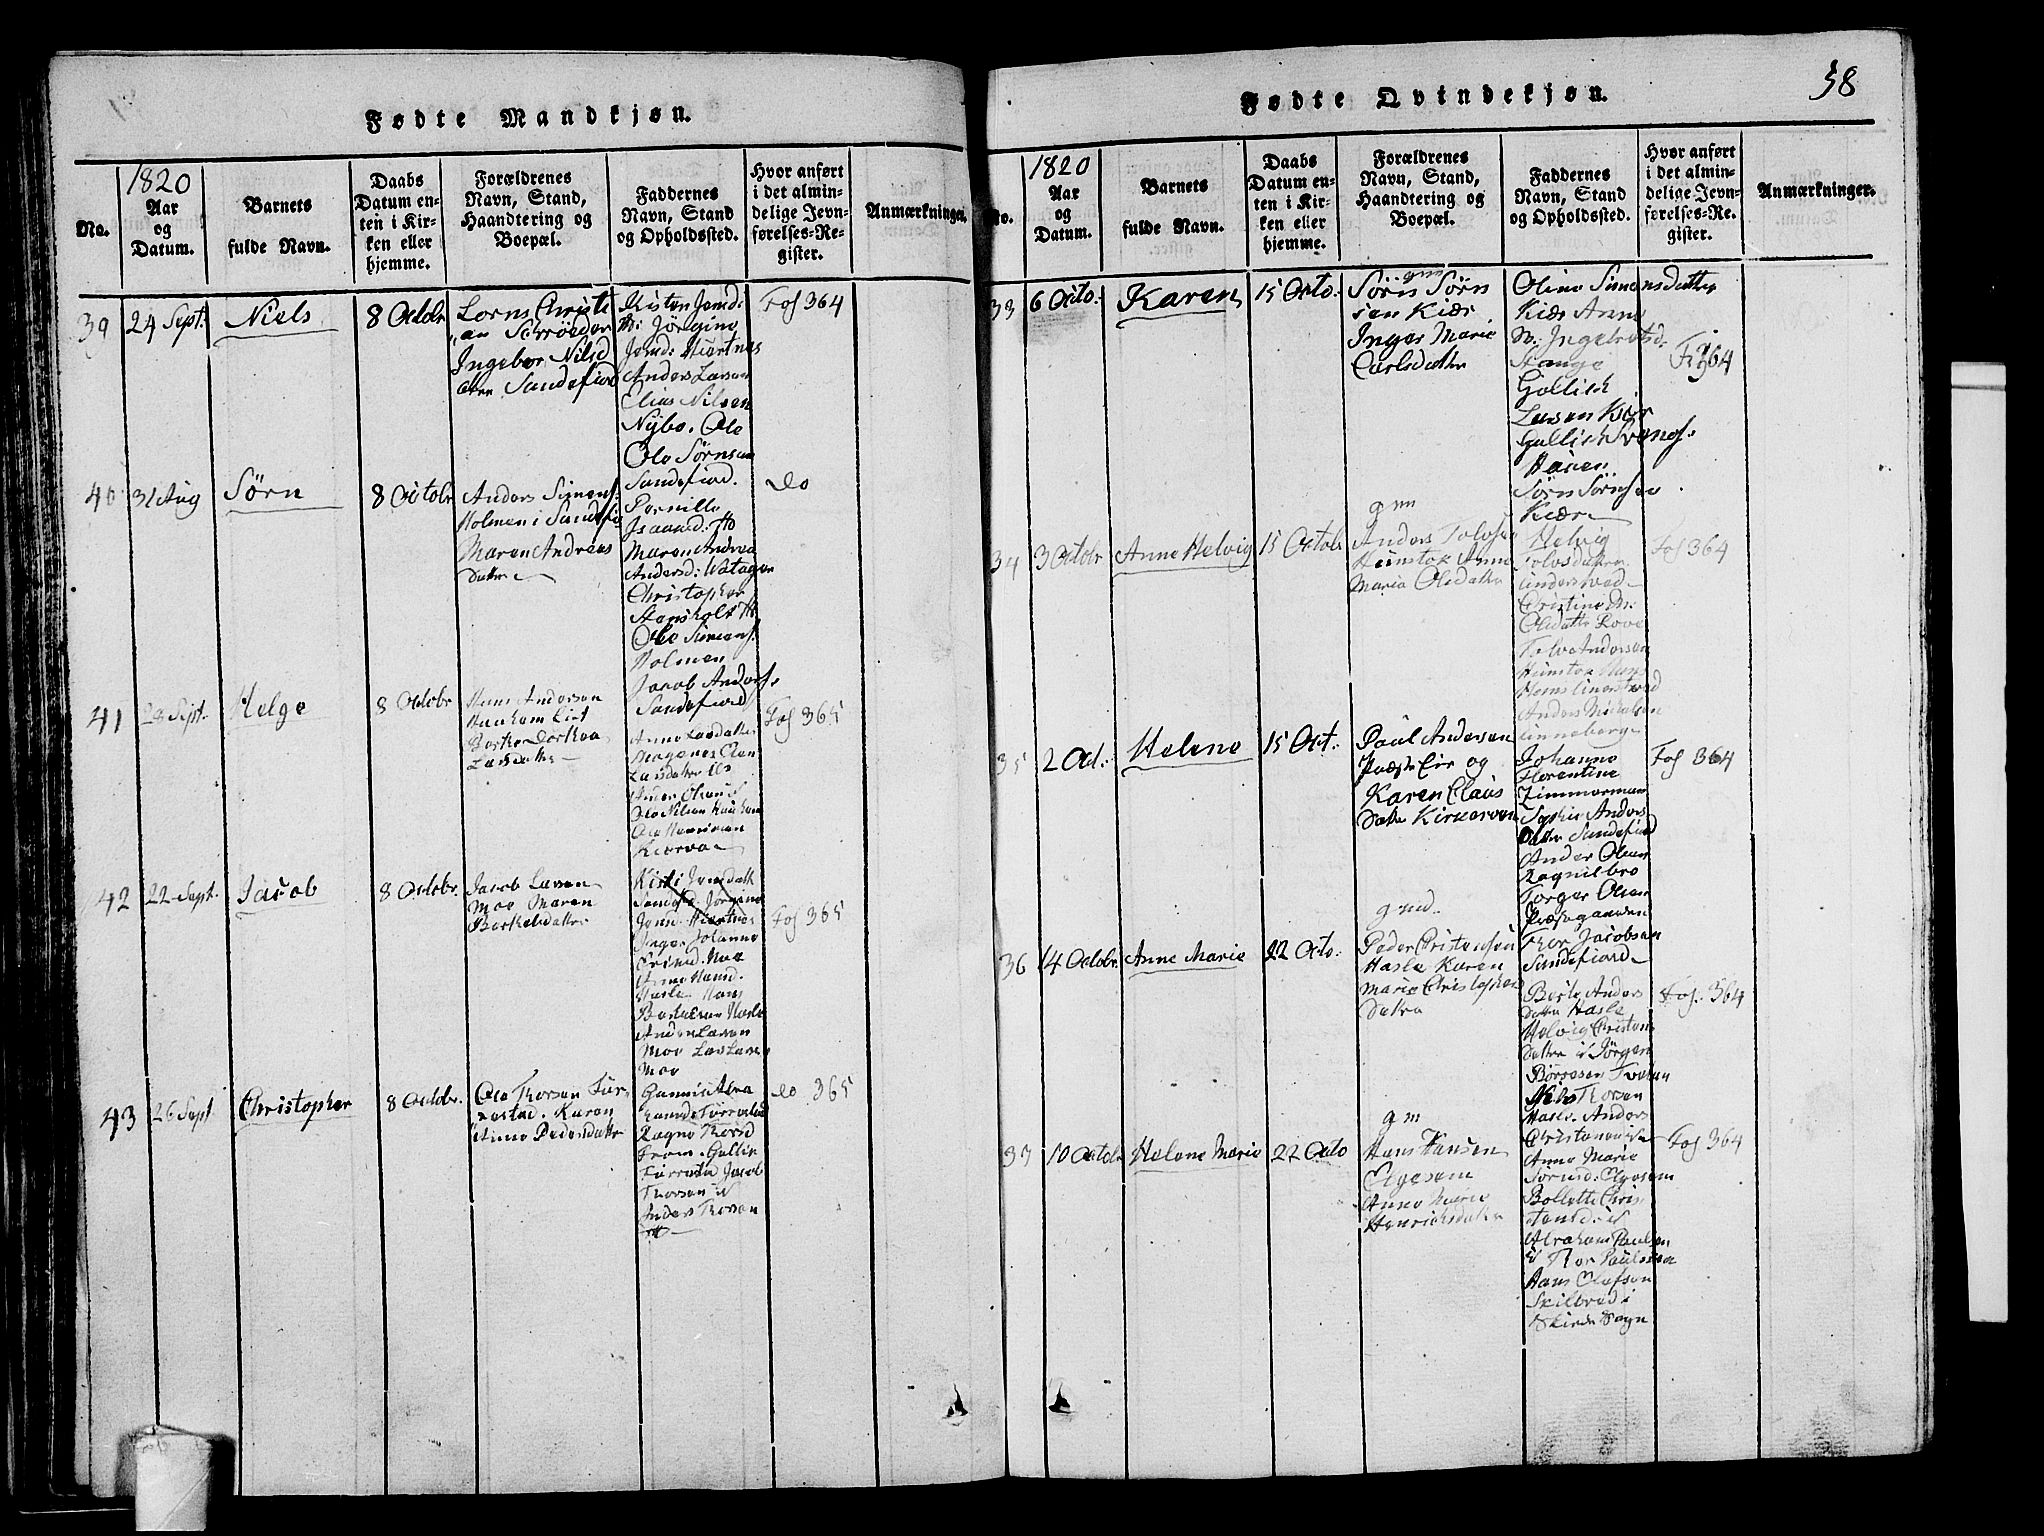 Fødte Mandkjøn.
No.
1820
Aar
og
Datum.
Barnets
fulde Navn.
Daabs
Datum en-
ten i Kir-
ken eller
hjemme.
Forældrenes
Navn, Stand,
Haandtering og
Boepæl.
Faddernes
Navn, Stand
og Opholdssted.
Hvor anført
i det almin-
delige Jevn-
førelses-Re-
gister.
Anmærkninger.
39
24 Sept.
Niels
8 Octobr
Lorns Christi
an Schrøeder
Ingebor Nilsd
atter Sandefiord
Kisten Jensd:
Jørgine
Jensd: Hiertnes
Anders Larsen
Elias Nilsen
Nybo. Ole
Ole Sørnsen
Sandefiord.
Fol 364
40
31 Aug
Sørn
8 Octobr
Anders Simens.
Holmen i Sandefio
Maren Andreas
Datter
Pernille
Isaacsd:
Maren Andrea
Andersd:
Christopher
Stensholt
Ole Simens.
Holmen
Jacob Anders.
Sandefiord
do
41
28 Sept.
Helge
8 Octobr
Hans Andersen
Haukem
Larsdatter
Anne Larsdatter
Larsdatter
Anders Olsen
Ole Nilsen Haukem
Fol 365
42
22 Sept.
Jacob
8 Octobr.
Jacob Larsen
Moe Maren
Bertelsdatter
Kisti Jensdatt
Sandefio Jørgine
Jensd. Hiertnes
Inger Johanne
Moe
Anne Hansd.
Hasle Hans
Hasle
Anders Larsen
Moe Lars Larsen
Moe
Fol 365
43
26 Sept
Christopher
8 Octobr.
Ole Thorsen Fur-
restad. Karen
Anne Pedersdatter
Ragne Thorsd
Jacob
Thorsen
Anders Thorsen
do 365
Fødte Qvindekjøn.
58
No.
1820
Aar
og
Datum.
Barnets
fulde Navn.
Daabs
Datum en-
ten i Kir-
ken eller
hjemme.
Forældrenes
Navn, Stand,
Haandtering og
Boepæl.
Faddernes
Navn, Stand
og Opholdssted.
Hvor anført
i det almin-
delige Jevn-
førelses-Re-
gister.
Anmærkninger.
33
6 Octo.
Karen
15 Octo.
gm
Sørn Sørn
sen Kiær
Inger Marie
Carlsdatter
Oline Simensdatter
Kiær Anne
M. Ingebretsd.
Stange
Gollich
Larsen Kiær
Gullich Svends.
Hauen
Sørn Sørnsen
Kiær
Fol 364
34
3 Octobr
Anne Helvig
15 Octobr
gm
Anders Tolvsen
Heimstok Anne
Maria Olsdatter
Helvig
Tolvsdatter
Christine M:
Olsdatter
Tolv Andersen
Heimstok
Anders Mickelsen
Linneberg
Fol 364
35
2 Oct.
Helene
15 Oct.
Paul Andersen
og
Karen Claus
Datter
Johanne
Florentine
Zimmerman
Sophie Anders
Datter Sandefiord
Anders Olsen
Ragnilbro
Torger Olsen
Thor Jacobsen
Sandefiord
Fol 364
36
14 Octobr.
Anne Marie
22 Octo.
gmd.
Peder Cristensen
Hasle Karen
Marie Christophers
Datter
Berte Anders
Datter Hasle
Helvig Cristens
Datter Jørgen
Børresen
Niels Thorsen
Hasle. Anders
Christensen
Fol. 364
37
10 Octobr
Helene Marie
22 Octo
gm
Hans Hansen
Elgesem
Anne Marie
Henrichsdatter
Anne Marie
Sørnsd. Elgesem
Bollette Chris
tensd:
Abraham Paulsen
Thor Paulsen
Hans Olafsen
Skilbred i
Skiede Sogn
Fol 364